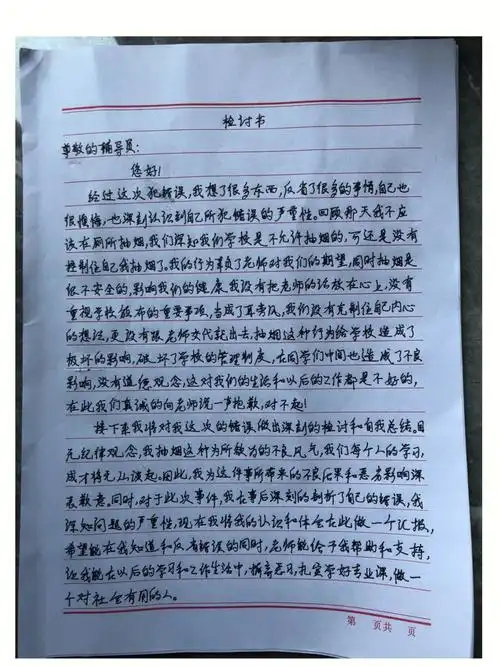 检讨书
尊敬的辅导员：
您好！
经过这次犯错误，我想了很多东西，反省了很多的事情，自己也
很懊悔，也深刻认识到自己所犯错误的严重性。回顾那天我不应
该在厕所抽烟，我们深知我们学校是不允许抽烟的，可还是没有
控制住自己我抽烟了。我的行为辜负了老师对我们的期望，同时抽烟是
很不安全的，影响我们的健康。我没有把老师的话放在心上，没有
重视学校颁布的重要事项，当成了耳旁风，我们没有克制住自己内心
的想法，更没有跟老师交代就出去，抽烟这种行为给学校造成了
极坏的影响，破坏了学校的管理制度，在同学们中间也造成了不良
影响，没有道德观念，这对我们的生活和以后的工作都是不好的，
在此我们真诚的向老师说一声抱歉，对不起！
接下来我将对我这次的错误做出深刻的检讨和自我总结。目
无纪律观念，我抽烟这种为所欲为的不良风气，我们每个人的学习，
成才将无从谈起。因此，我为这件事所带来的不良后果和恶劣影响深
表歉意。同时，对于此次事件，我在事后深刻的剖析了自己的错误，我
深知问题的严重性，现在我将我的认识和体会在此做一个汇报，
希望能在我知道和反省错误的同时，老师能给予我帮助和支持，
让我能在以后的学习和工作生活中，摒弃恶习，扎实学好专业课，做一
个对社会有用的人。
第 页共 页